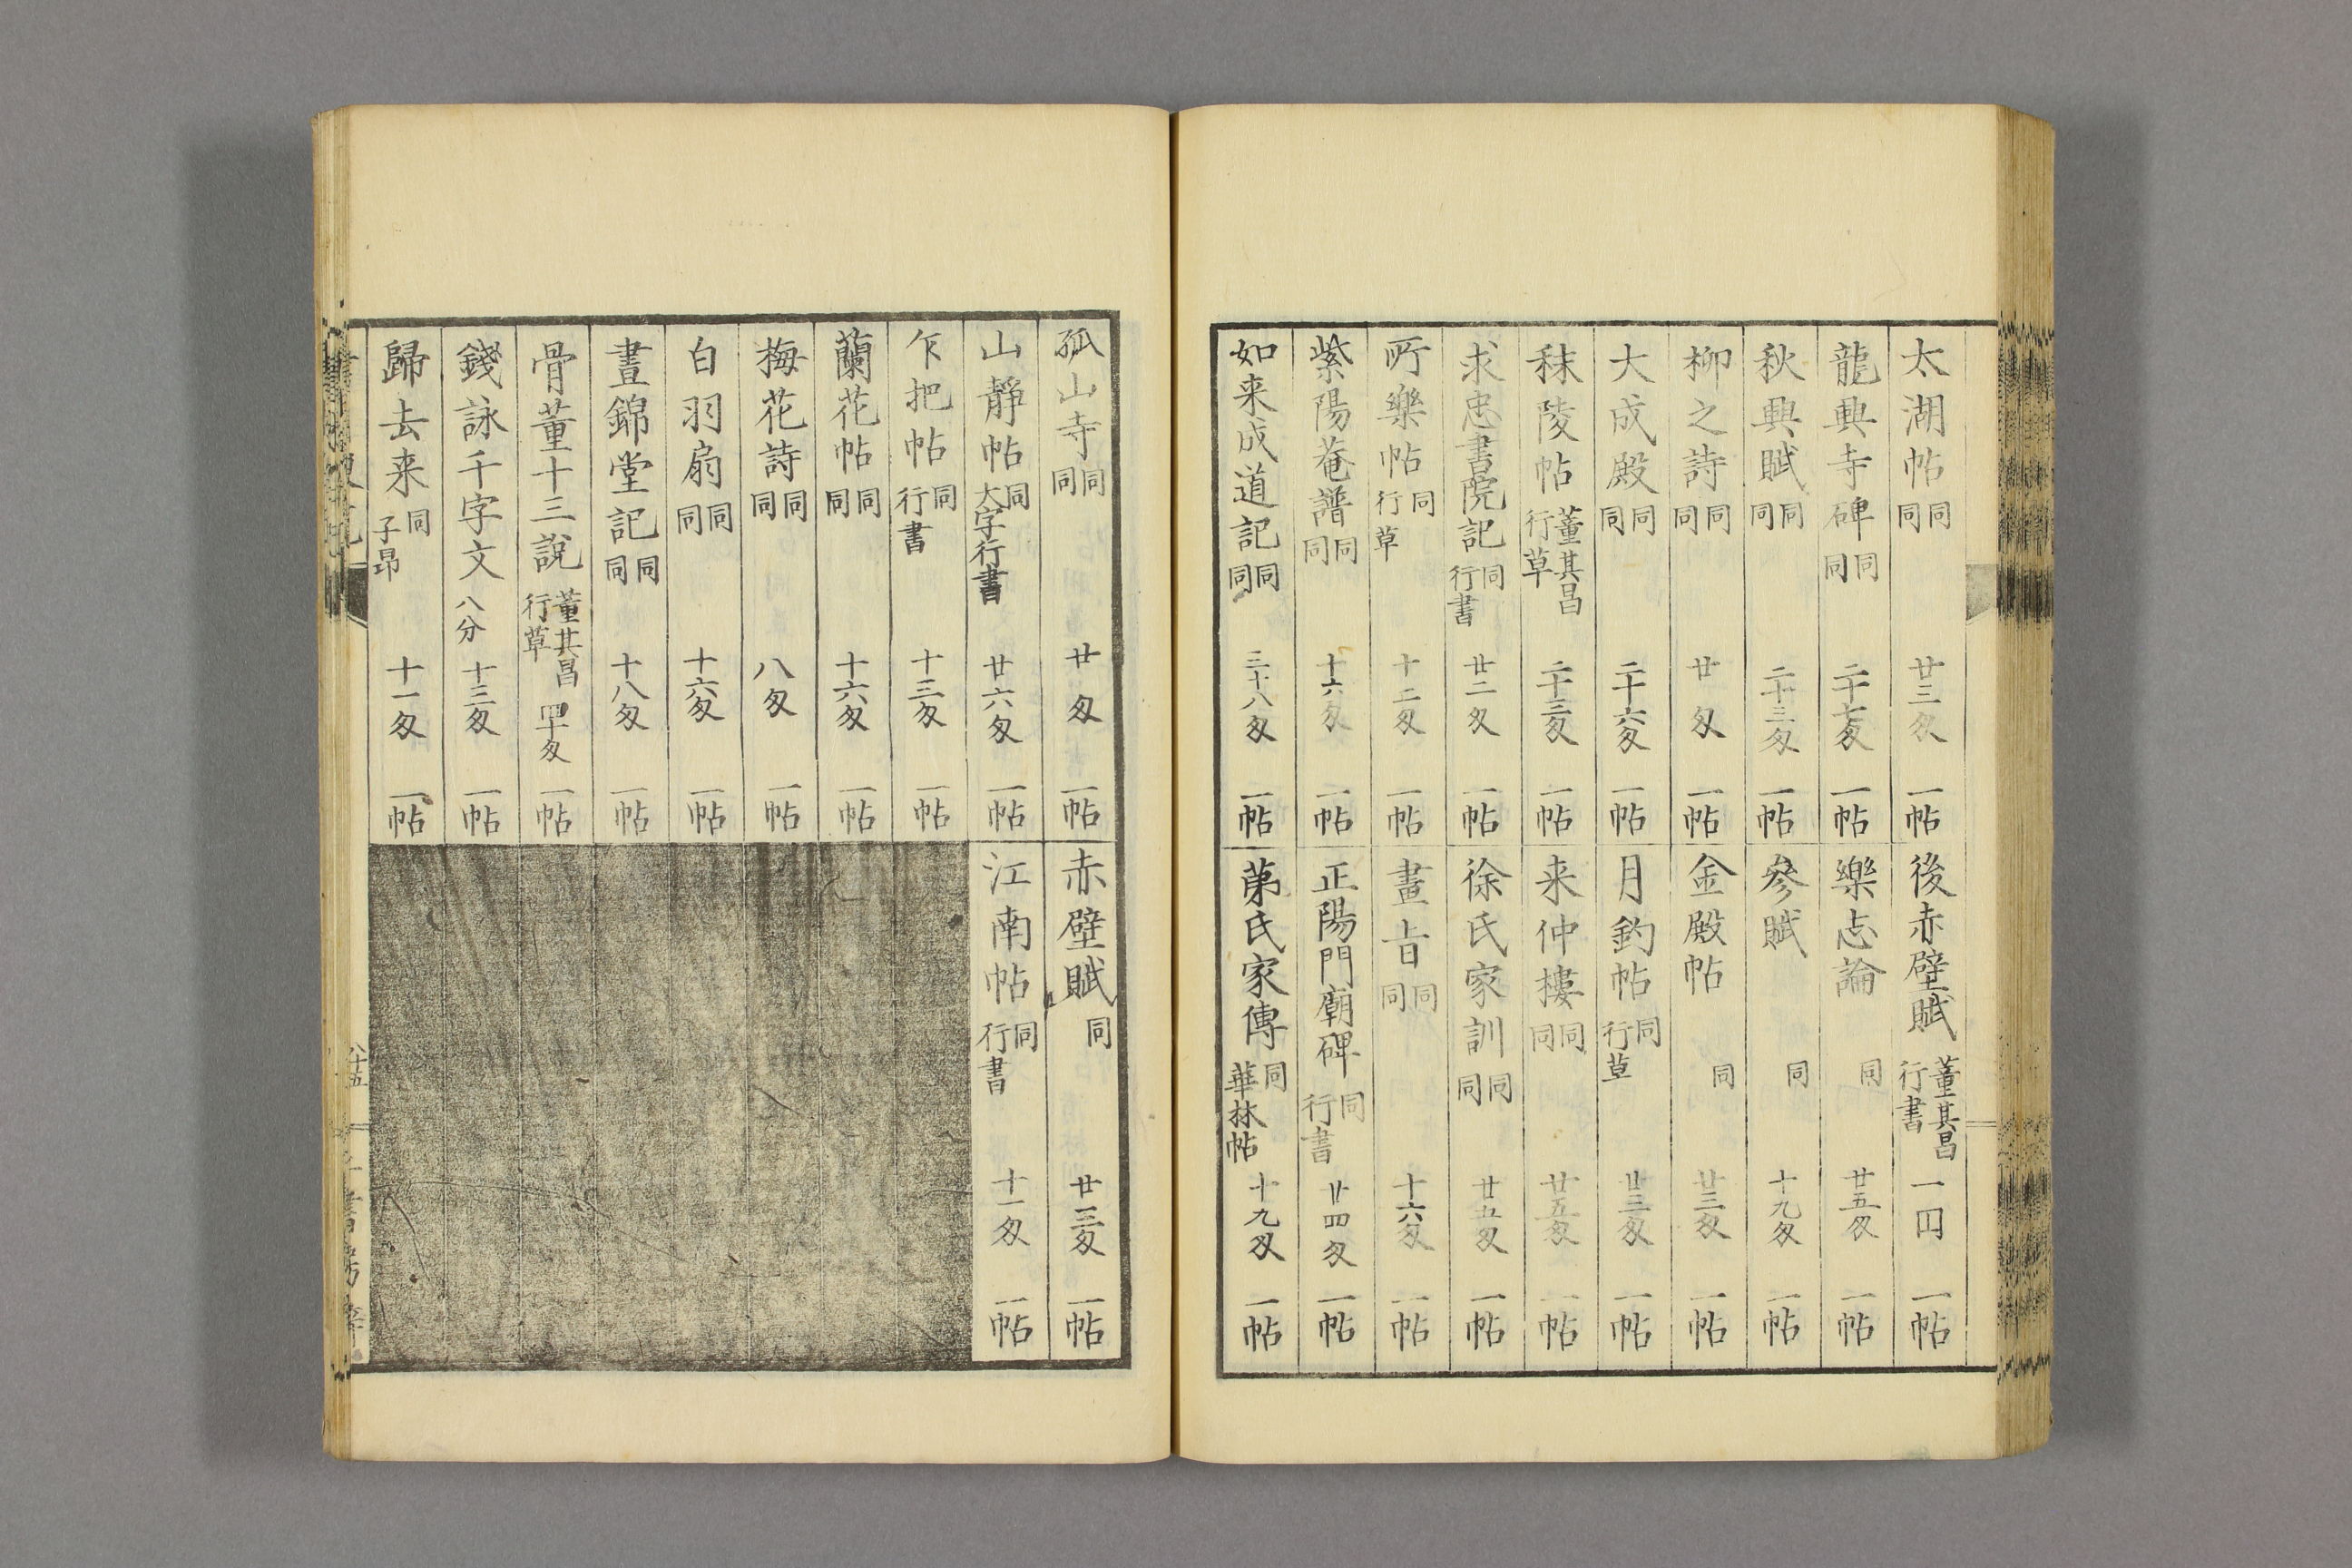 太湖帖 同同 廿三匁 一帖
龍興寺碑 同同 二十七匁 一帖
秋興賦 同同 二十三匁 一帖
柳之詩 同同 廿匁 一帖
大成殿 同同 二十六匁 一帖
秣陵帖 董其昌行草 二十三匁 一帖
求忠書院記 同行書 廿二匁 一帖
所樂帖 同行草 十二匁 一帖
紫陽菴譜 同同 十六匁 一帖
如来成道記 同同 三十八匁 一帖
後赤壁賦 董其昌行書 一円 一帖
樂志論 同 廿五匁 一帖
參賦 同 十九匁 一帖
金殿帖 同 廿三匁 一帖
月釣帖 同行草 廿三匁 一帖
来仲樓 同同 廿五匁 一帖
徐氏家訓 同同 廿五匁 一帖
畫旨 同同 十六匁 一帖
正陽門廟碑 同行書 廿四匁 一帖
苐氏家傳 同華林帖 十九匁 一帖
孤山寺 同同 廿匁 一帖
山靜帖 同大字行書 廿六匁 一帖
乍把帖 同行書 十三匁 一帖
蘭花帖 同同 十六匁 一帖
梅花詩 同同 八匁 一帖
白羽扇 同同 十六匁 一帖
晝錦堂記 同同 十八匁 一帖
骨董十三說 董其昌行草 四十匁 一帖
錢詠千字文 八分 十三匁 一帖
歸去来 同子昂 十一匁 一帖
赤壁賦 同 廿三匁 一帖
江南帖 同行書 十一匁 一帖
八十五